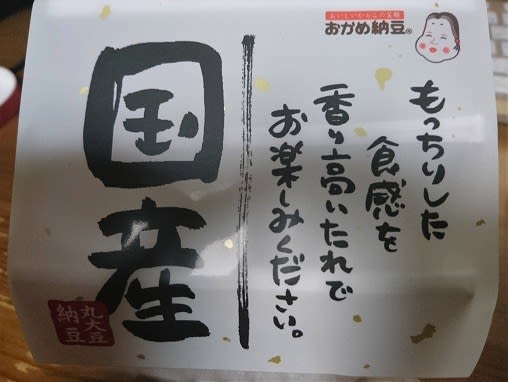 おいしいからこの笑顔
おかめ納豆®
もっちりした
食感を
香り高いたれで
お楽しみください。
国産
丸大豆
納豆